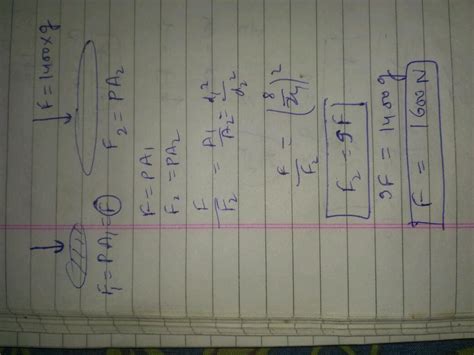 F = 1400×g
F₁ = PA₁ = F F₂ = PA₂
F = PA₁
F₂ = PA₂
F/F₂ = A₁/A₂ = d₁²/d₂²
F/F₂ = (8/24)²
F₂ = 9F
9F = 1400g
F = 1600N